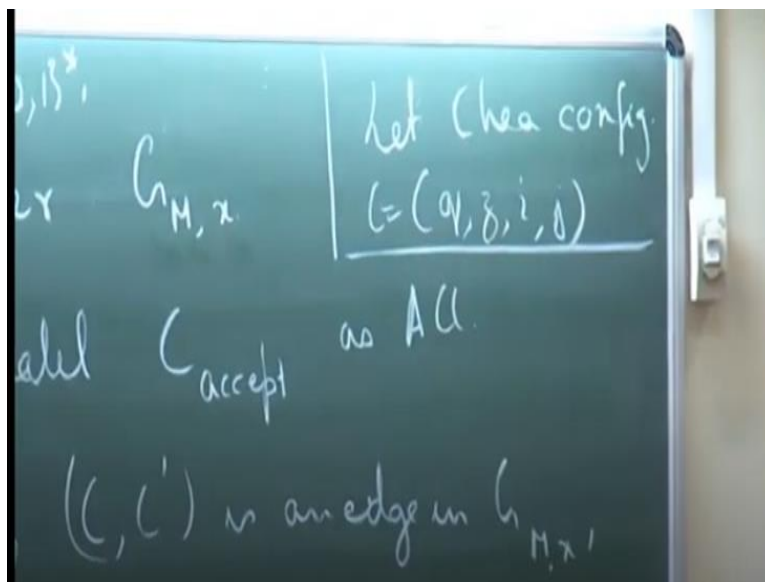 0,1}*.
Let C be a config.
er G_{M,x}
C=(q,z,i,j)
abel C_{accept} as ACC.
(C,C') is an edge in G_{M,x},